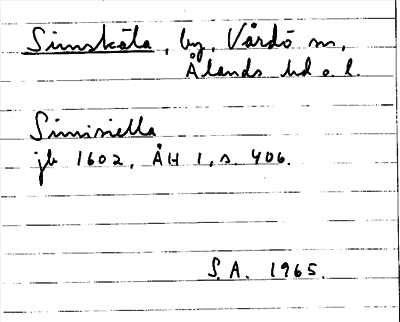 Simskäla, by, Vårdö sn,
Ålands hd o. l.
Simisiella
jb 1602, ÅH 1, s. 406.
S. A. 1965.